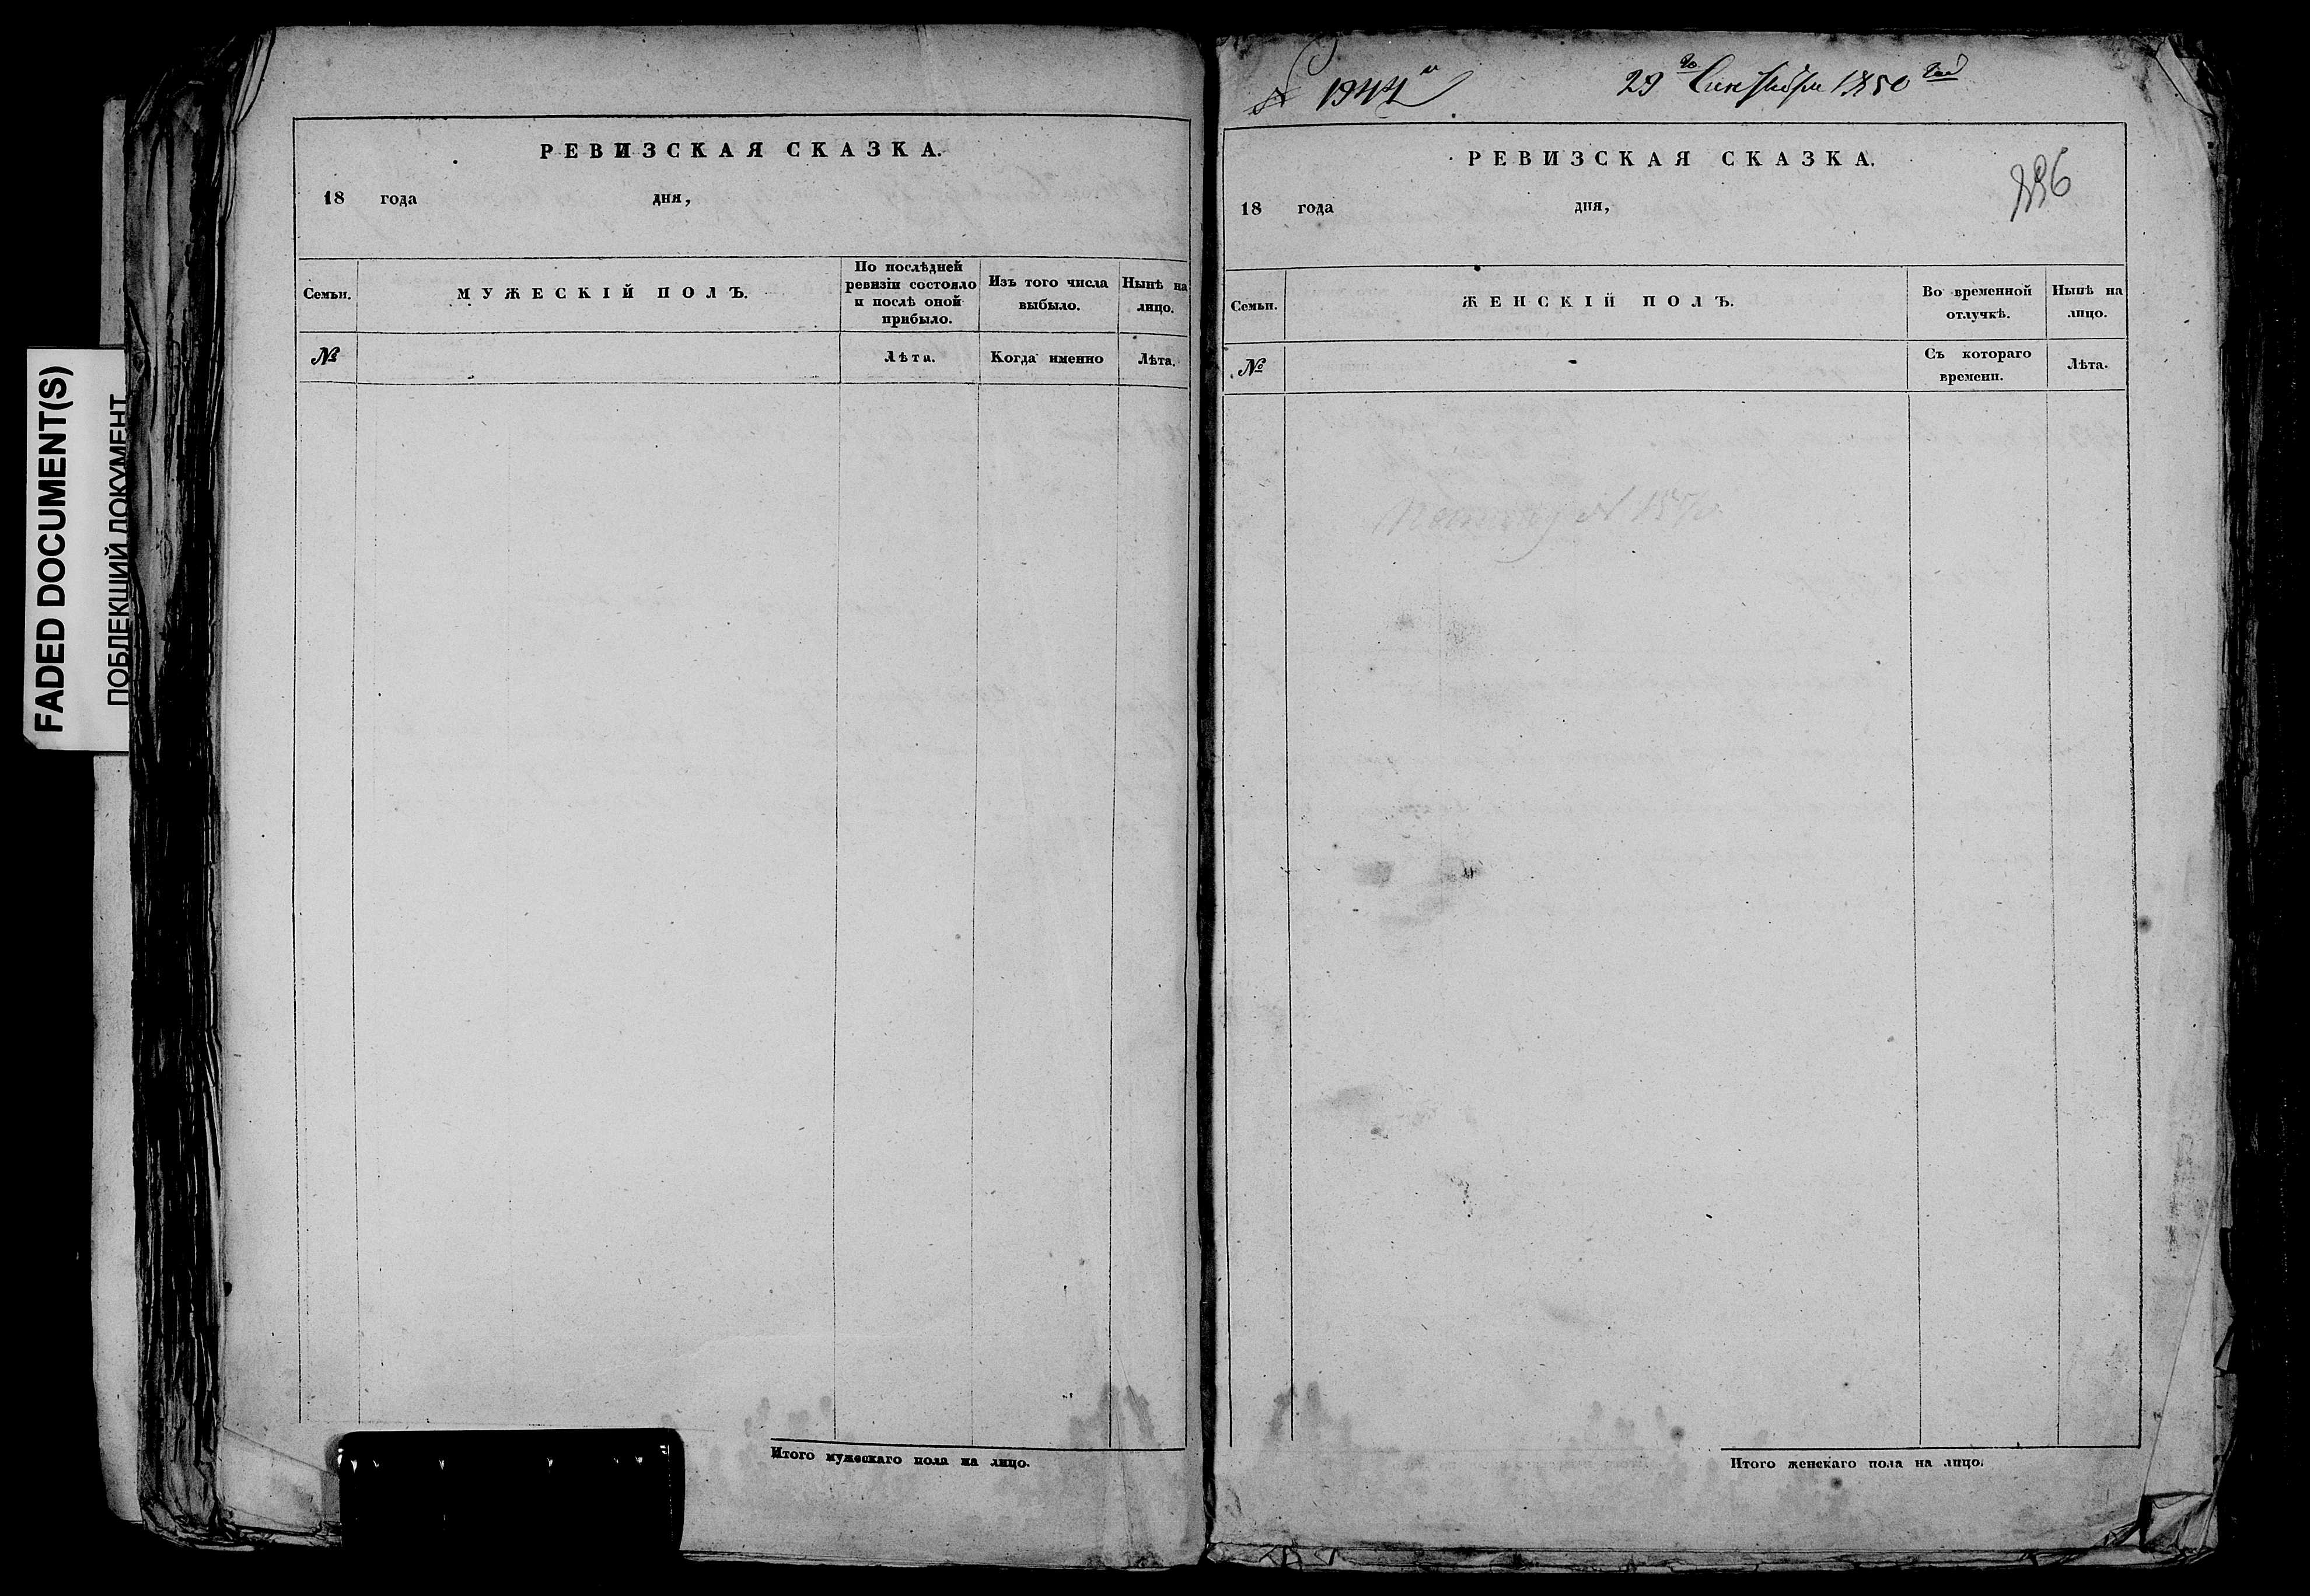 FADED DOCUMENT(S)
ПОБЛЕКШИЙ ДОКУМЕНТ
РЕВИЗСКАЯ СКАЗКА.
18 года дня,
Семьи.
МУЖЕСКІЙ ПОЛЪ.
По послѣдней
ревизіи состояло
и послѣ оной
прибыло.
Изъ того числа
выбыло.
Нынѣ на
лицо.
№
Лѣта.
Когда именно
Лѣта.
Итого мужескаго пола на лицо.
№ 1944
29го Сентября 1850 года
РЕВИЗСКАЯ СКАЗКА.
18 года дня,
Семьи.
ЖЕНСКІЙ ПОЛЪ.
Во временной
отлучкѣ.
Нынѣ на
лицо.
№
Съ котораго
времени.
Лѣта.
Итого женскаго пола на лицо.